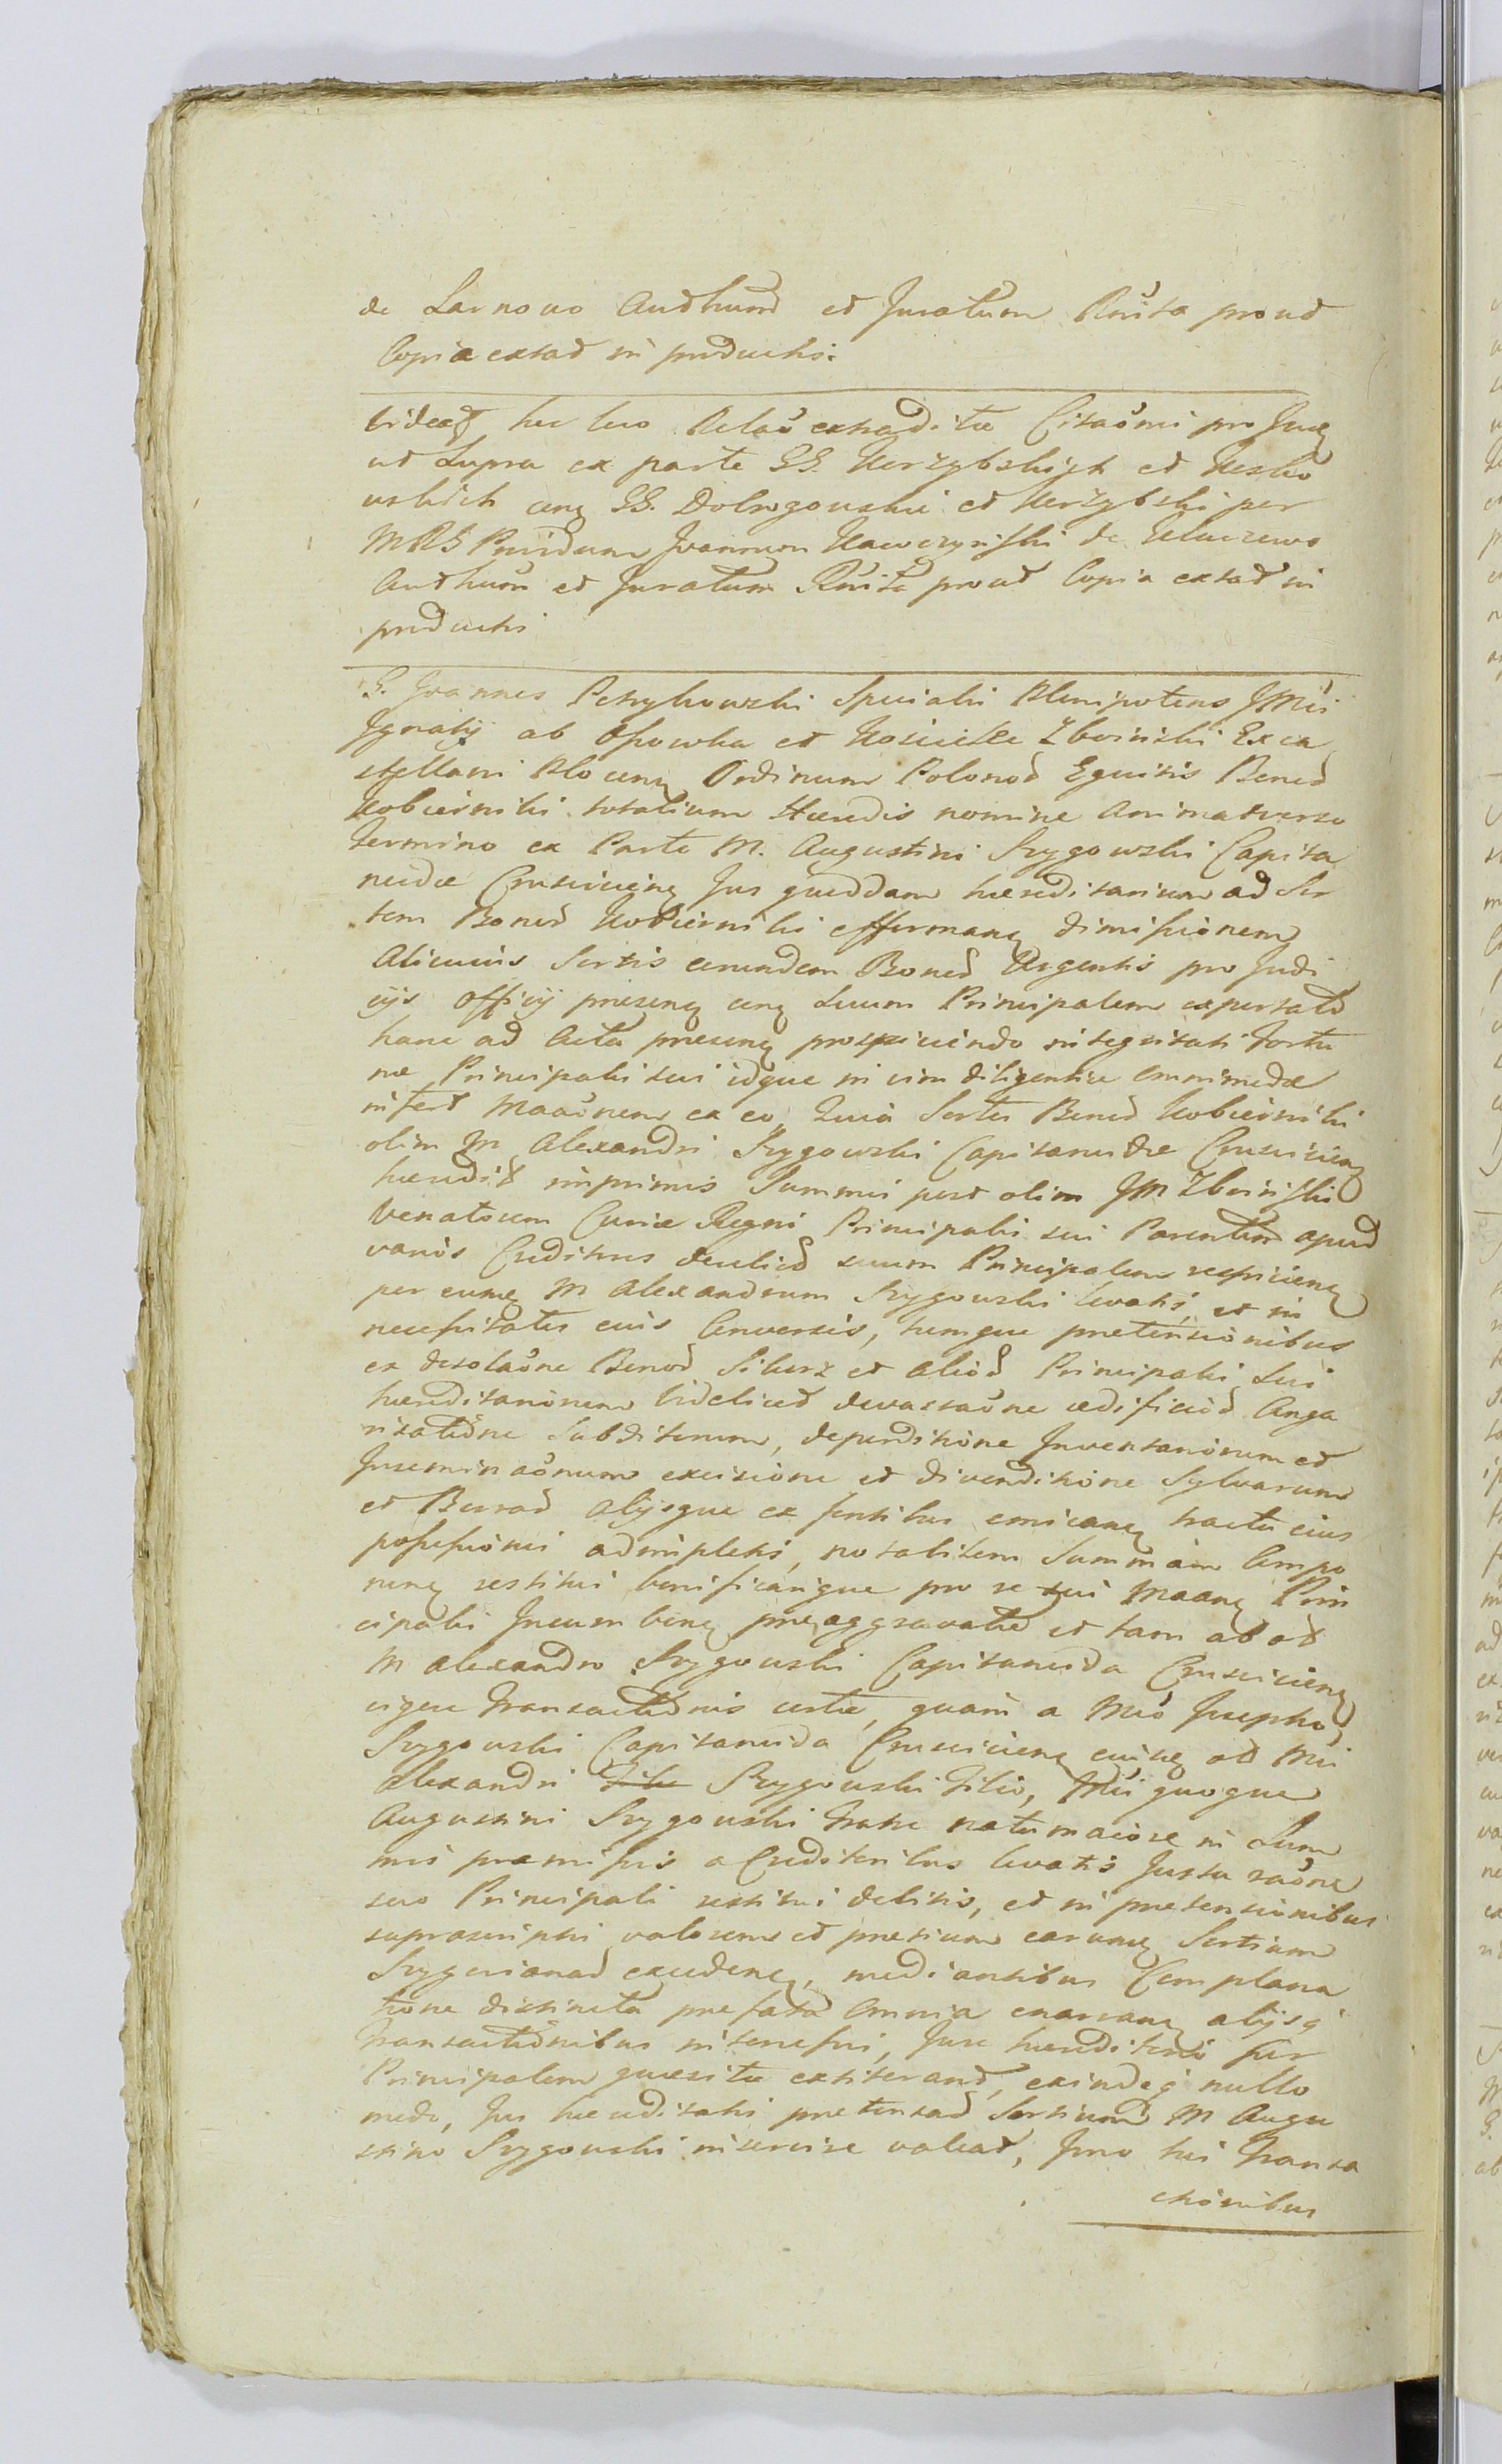 de Larnowo Authum et Juratum Rnita prout
Copia extat in productis.
Videat hic loco Relaõ extradite Citaõnis pro
ut supra ex parte GG. et
GG. Dobrogowski et per
MRS Providum Joannem de
Authum et Juratum Rnita prout Copia extat in
productis
G. Joannes Petrykowski Specialis Plenipotens JMci
Ignatij ab Ossowka et Koscielec Zboinski Exca
stellani Plocen Ordinum Polonor Equitis Bonor
Kobierniki totalium Hæredis nomine animatverso
Termino ex Parte M. Augustini Szygowski Capita
neidæ Crusvicien Jus quoddam hæreditarium ad Sor
tem Bonor Kobierniki affirman dimissionem
Alicuius Sortis eorundem Bonor Urgentis pro Judi
cijs officij presen cum Suum Principalem exportato
hanc ad Acta presen prospiciendo integritati Fortu
næ Principalis sui idque in vim diligentiæ omnimodæ
infert Maaõnem ex eo, Quia Sortes Bonor Kobierniki
olim M Alexandri Szygowski Capitaneidæ Crusvicien
hæredit imprimis Summis per olim JM Zboinski
Venatorem Curiæ Regni Principalis sui Parentem apud
varios Creditores suum Principalem respicien
per eum M Alexandrum Szygowski levatis, et in
necessitates eius Conversis, tumque pretensionibus
ex desolaõne Bonor et alior Principalis Sui
hæreditariorum videlicet devastaõne ædificior Anga
riatione Subditorum, deperditione Inventariorum et
Inseminaõnum excisione et divenditione Sylvarum
et Borrar alijsque ex fontibus emican tractu eius
possessionis adimpletis, notabilem Summam Compo
nen restitui bonificarique pro se sui Maan Prin
cipalis Incumben preaggravatæ et tam ab od
M Alexandro Szygowski Capitaneida Crusvicien
vigore Transactionis certæ, quam a Mco Josepho
Szygowski Capitaneida Crusvicien od Mci
Alexandri Szygowski Filio, Mci quoque
Augustini Szygowski Fratre natu maiore in Sum
mis præmissis a Creditoribus levatis Justa raõne
suo Principali restitui debitis, et in pretensionibus
suprascriptis valorem et pretium earum Sortium
Szygovianar exceden, mediantibus Complana
tione distincta prefata omnia enarran alijsq
Transactionibus intercessis, Jure hæreditario per
Principalem quæsitæ extiterant, exindeq nullo
modo, Jus hæreditatis pretensar Sortium M Augu
stino Szygowski inservire valeat, Imo his Transa
ctionibus